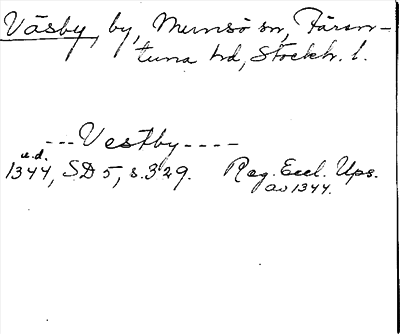 Väsby, by, Munsö sn, Fären-
tuna hd, Stockh. l.
---Vestby----
u.d.
1344, SD 5, s. 329. Reg. Eccl. Ups.
av 1344.